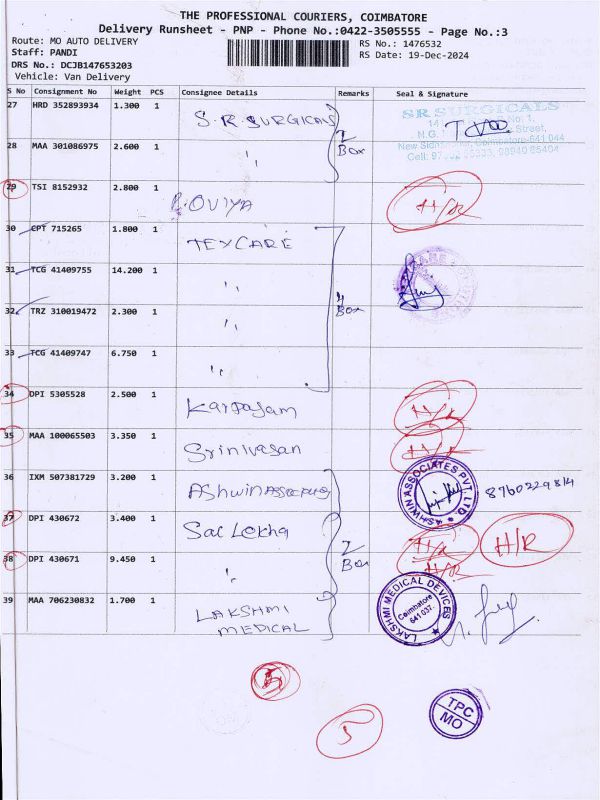 THE PROFESSIONAL COURIERS, COIMBATORE
Delivery Runsheet - PNP - Phone No.:0422-3505555 - Page No.:3
Route: MO AUTO DELIVERY RS No.: 1476532
Staff: PANDI RS Date: 19-Dec-2024
DRS No.: DCJB147653203
Vehicle: Van Delivery
S No Consignment No Weight PCS Consignee Details Remarks Seal & Signature
27 HRD 352893934 1.300 1 S.R SURGICALS 2 Box SR SURGICALS
28 MAA 301086975 2.600 1 ,,
29 TSI 8152932 2.800 1 OVIYA H/R
30 CPT 715265 1.800 1 TEXCARE 4 Box
31 TCG 41409755 14.200 1 ,,
32 TRZ 310019472 2.300 1 ,,
33 TCG 41409747 6.750 1 ,,
34 DPI 5305528 2.500 1 Karpagam H/R
35 MAA 100065503 3.350 1 Srinivasan H/R
36 IXM 507381729 3.200 1 Ashwin ASHWIN ASSOCIATES PVT. LTD.
37 DPI 430672 3.400 1 Sai Lekha 2 Box H/R H/R
38 DPI 430671 9.450 1 ,, H/R
39 MAA 706230832 1.700 1 LAKSHMI MEDICAL LAKSHMI MEDICAL DEVICES Coimbatore 641 037.
5
5
TPC
MO